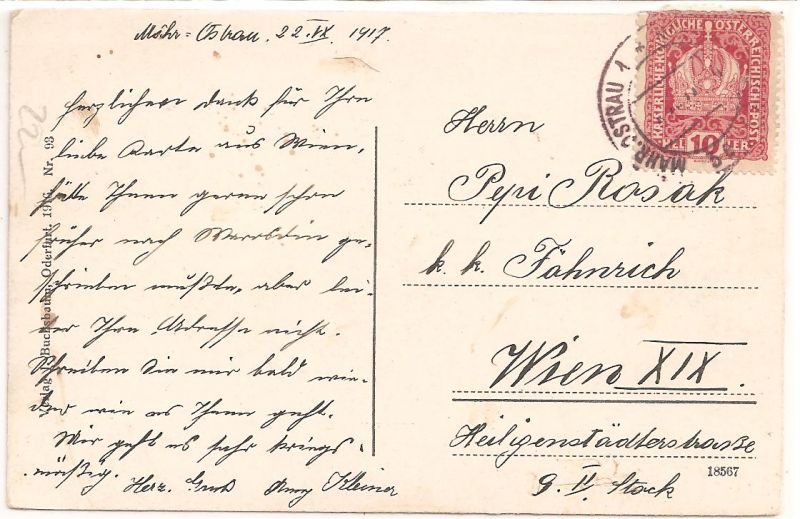 Mähr-Ostrau. 22. IX 1917.
Herzlichen Dank für Ihre
liebe Karte aus Wien,
hätte Ihnen gerne schon
früher nach Warasdin ge-
schrieben, aber lei-
der Ihre Adresse nicht.
Schreiben Sie mir bald wie-
der wie es Ihnen geht.
Mir geht es sehr kriegs-
mäßig.
Herz. Gruß Kleiner
Herrn
Pepi Rosak
k. k. Fähnrich
Wien XIX.
Heiligenstädterstraße
9. II. Stock
18567
Buchsbaum, Oderfurt, Nr. 93
22
MÄHR. OSTRAU 1
KAISERLICHE KÖNIGLICHE ÖSTERREICHISCHE POST
10